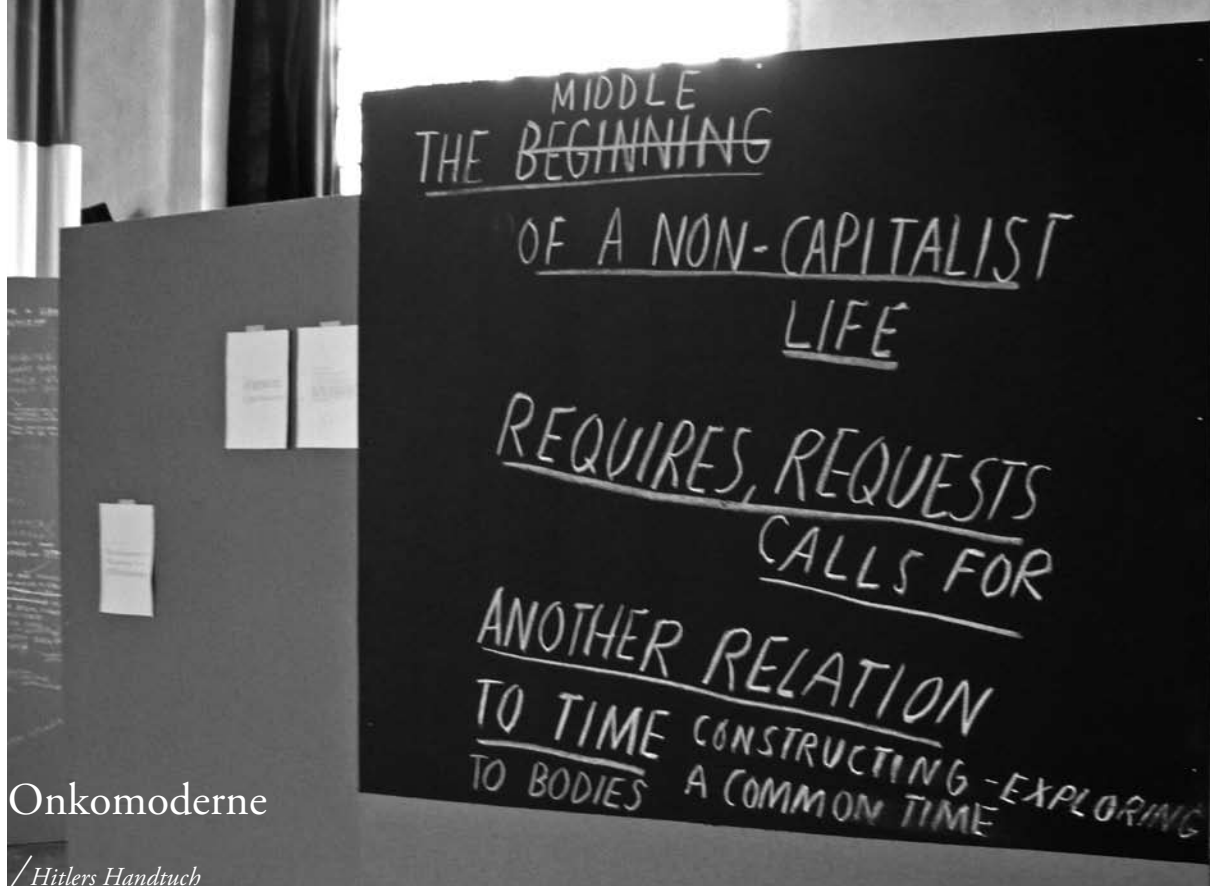 MIDDLE
THE BEGINNING
OF A NON-CAPITALIST
LIFE
REQUIRES, REQUESTS
CALLS FOR
ANOTHER RELATION
TO TIME CONSTRUCTING-EXPLORING
TO BODIES A COMMON TIME
Onkomoderne
/Hitlers Handtuch